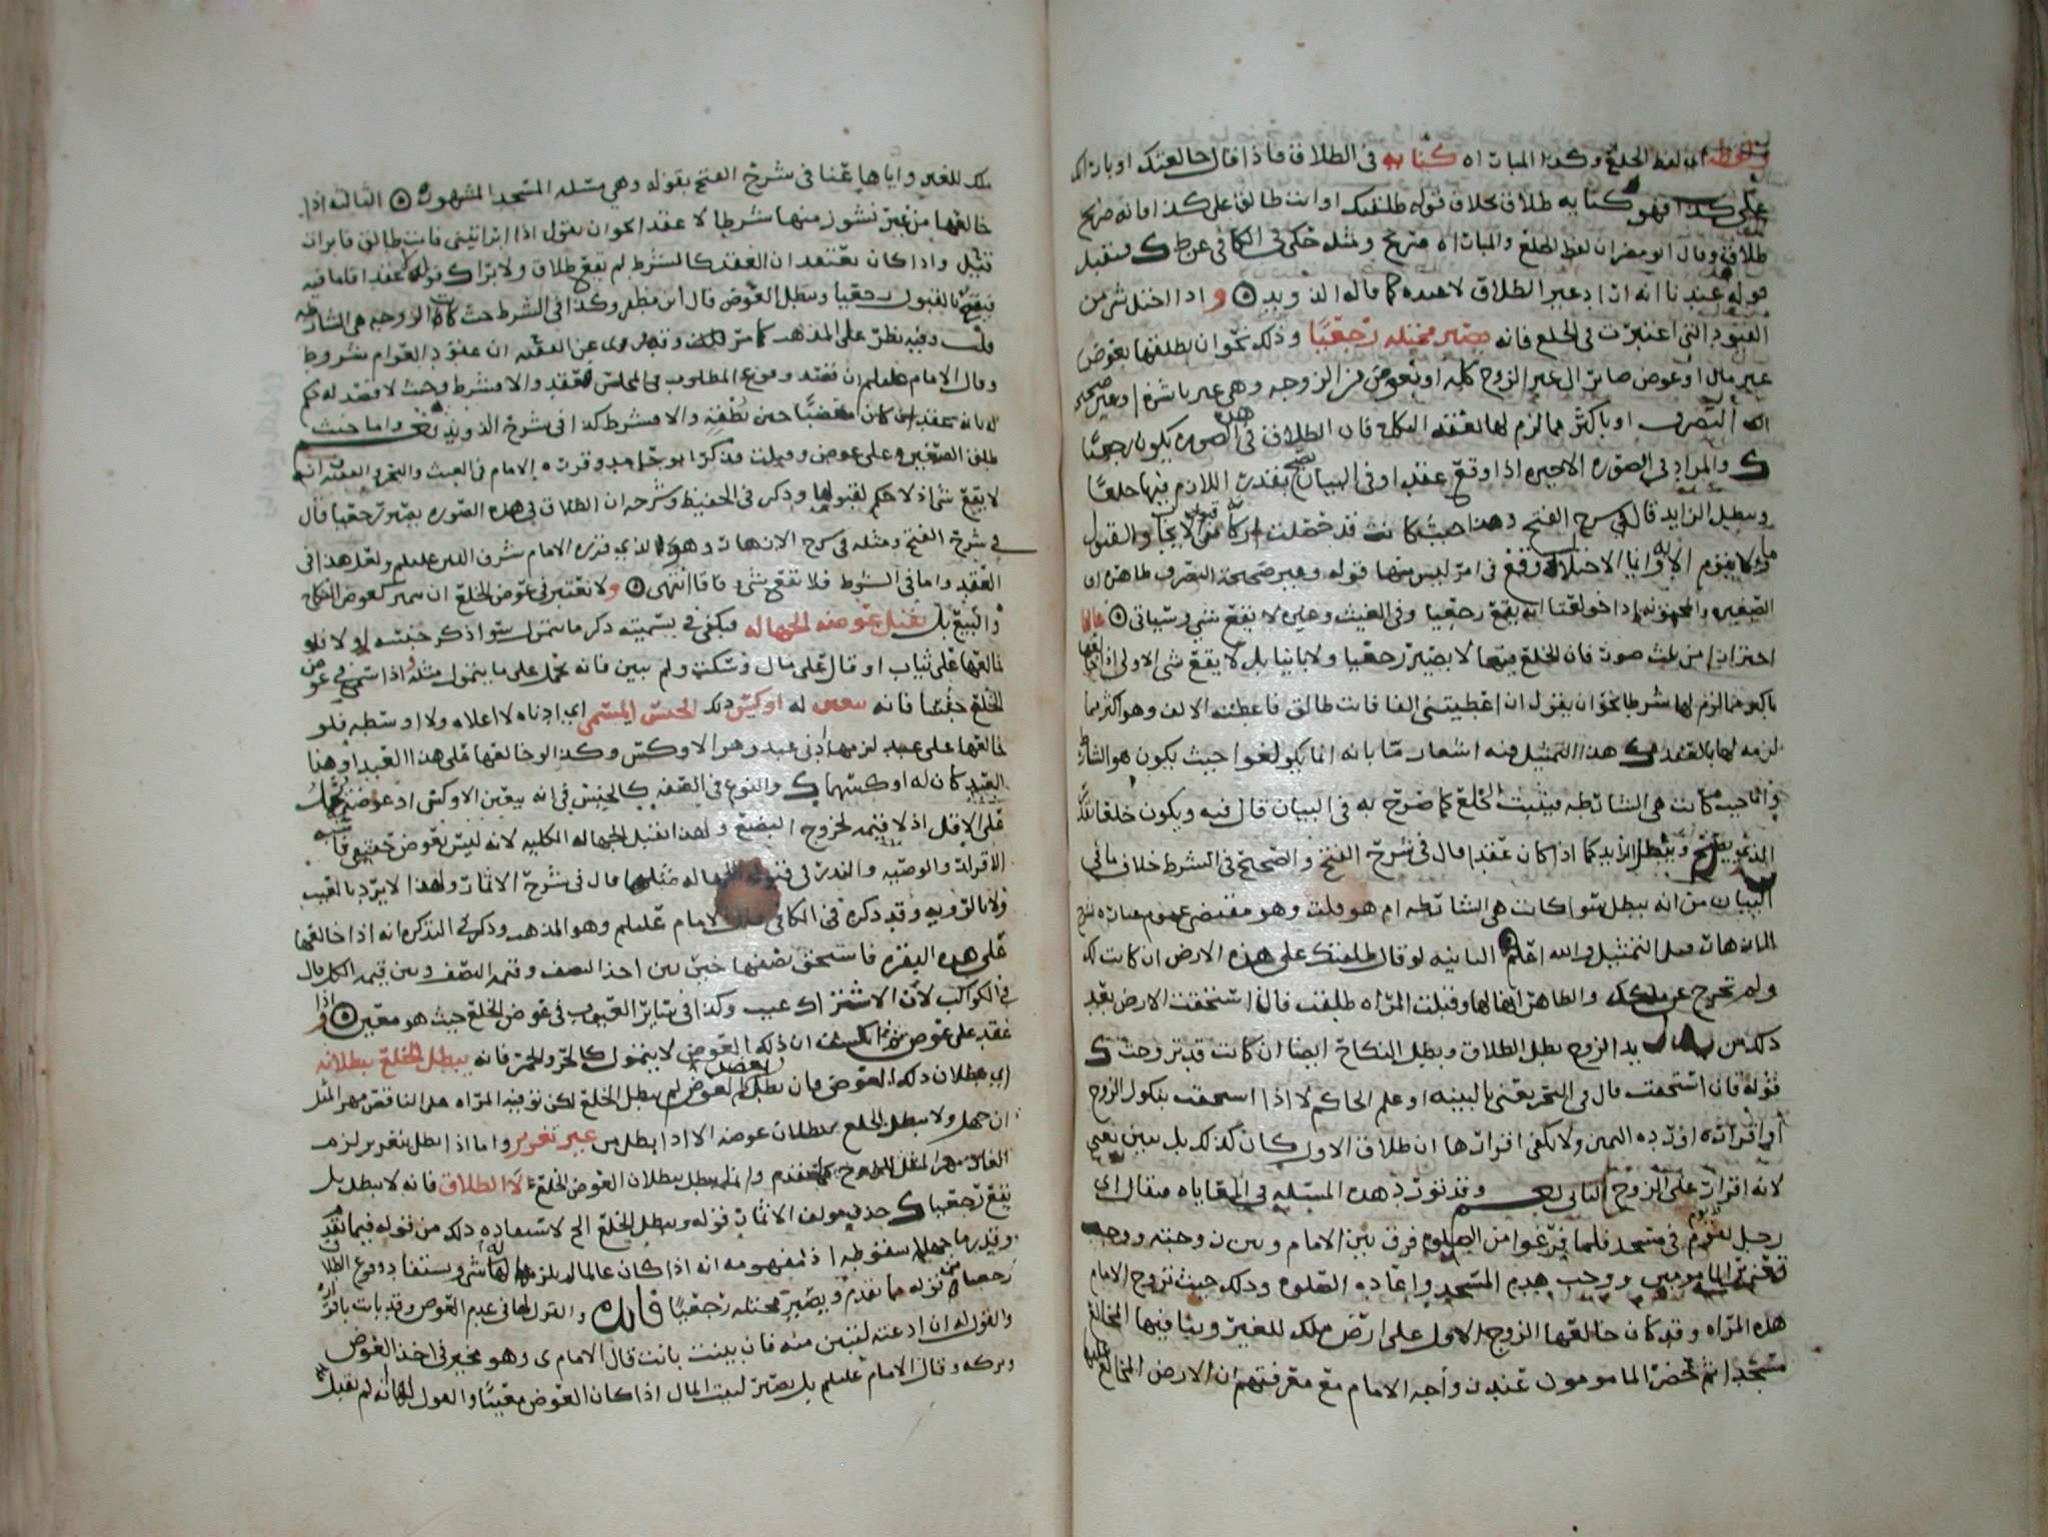 ولفظه اي لفظ الخلع وكذا المباراه كنايه في الطلاق فاذا قال خالعتك او بارات
على كذا فهو كنايه طلاق بخلاف قوله طلقتك او انت طالق على كذا فانه صريح
طلاق وقال ابو مضر ان لفظ الخلع والمباراه صريح ومثله حكى في الكافي عن ط
قوله عندنا انه ان اد غير الطلاق لا عنده كما قاله الذويد و اذا اختل شي من
القيود التي اعتبرت في الخلع فانه يصير مختله رجعيا وذلك نحو ان يطلقها بعوض
غير مال او عوض صائر الى غير الزوج كله او بعوض من الزوجه وهي غير ناشزه او غير صحيحه
التصرف او باكثر مما لزم لها بعقد النكاح فان الطلاق في هذه الصوره يكون رجعيا
والمراد في الصوره الاخيره اذا وقع عقدا وفي البيان يصح بقدر اللازم فيها خلعا
ويبطل الزايد قال في شرح الفتح وهذا حيث كانت قد حصلت من الايجاب والقبول
الاختلال وقع في امر ليس منها قوله وغير صحيحة التصرف ظاهره ان
الصغيره والمجنونه اذا خولعتا انه يقع رجعيا وفي الغيث وغيره لا يقع شي وسياتي غالبا
احترازا من ثلاث صور فان الخلع فيها لا يصير رجعيا ولا باينا بل لا يقع شي الاولى اذا خالعها
باكثر مما لزم لها شرطا نحو ان يقول ان اعطيتني الفا فانت طالق فاعطته الالف وهو اكثر مما
لزمه لها بالعقد هذا التمثيل فيه اشعار ما بانه انما يكون لغوا حيث يكون هو الشارط
واما حيث كانت هي الشارطه فيثبت الخلع كما صرح به في البيان قال فيه ويكون خلعا
ويبطل الزايد كما اذا كان عقدا قال في شرح الفتح والصحيح في الشرط خلاف ما في
البيان من انه يبطل سوا كانت هي الشارطه ام هو قلت وهو مقتضى عموم عباره
التمثيل والله اعلم الثانيه لو قال طلقتك على هذه الارض ان كانت لك
ولم تخرج عن ملكك والظاهر انها لها وقبلت المراه طلقت فان استحقت الارض بعد
ذلك من يد الزوج بطل الطلاق وبطل النكاح ايضا ان كانت قد تزوجت
قوله فان استحقت قال في البحر يعني بالبينه او علم الحاكم لا اذا استحقت بنكول الزوج
او اقراره او رده اليمين ولا يكفي اقرارها ان طلاق الاول كان كذلك بل يبين
لانه اقرار على الزوج الثاني وقد تورد هذه المسئله في المعاياه فيقال اي
رجل تقدم في مسجد فلما فرغوا من الصلوه فرق بين الامام وبين زوجته ووجب
المامومين ووجب هدم المسجد واعاده الصلوه وذلك حيث تزوج الامام
هذه المراه وقد كان خالعها الزوج الاول على ارض ملك للغير وبنا فيها المخالع
مسجدا ثم حضر المامومون عند زواجه الامام مع معرفتهم ان الارض المخالع عليها
ملك للغير واياها عنا في شرح الفتح بقوله وهي مسئله المسجد المشهوره الثالثه اذا
خالعها من غير نشوز منها شرطا لا عقدا نحو ان يقول اذا ابراتيني فانت طالق فابرات
قبل واذا كان يعتقد ان العقد كالشرط لم يقع طلاق ولا برا قوله لا عقدا فاما فيه
فيقع بالقبول رجعيا ويبطل العوض قال ابن مظفر وكذا في الشرط حيث كانت الزوجه هي الشارطه
قلت وفيه نظر على المذهب كما مر ان عقود العوام شروط
وقال الامام ان قصد وقوع المطلوب في المجلس فعقد والا فشرط وحيث لا قصد له حكم
له بانه عقد ان كان مغضبا حين نطقه والا فشرط كذا في شرح الذويد واما حيث
طلق الصغيره على عوض وقبلت فذكر ابو حامد وقرره الامام في الغيث والبحر انه
لا يقع شي اذ لا حكم لقبولها وذكر في الحفيظ وشرحه ان الطلاق في هذه الصوره يصير رجعيا قال
في شرح الفتح ومثله في شرح الاثمار وهو الذي قرره الامام شرف الدين ولعل هذا في
العقد واما في الشرط فلا يقع شي وفاقا انتهى ولا يعتبر في عوض الخلع ان كعوض النكاح
والبيع بل تقبل عوضه الجهاله ويكفي في تسميته ذكر ما يتمول سوا ذكر جنسه او لا فلو
خالعها على ثياب او قال على مال وسكت ولم يبين فانه يحمل على ما يتمول مثله واذا سمى في عوض
الخلع جنسا فانه يتعين له اوكس ذلك الجنس المسمى اي ادناه لا اعلاه ولا اوسطه فلو
خالعها على عبد لزمها ادنى عبد وهو الاوكس وكذا لو خالعها على هذا العبد او هذا
العبد كان له اوكسهما والنوع في الصفه كالجنس في انه يتعين الاوكس اذ عوضه
على الاقل اذ لا قيمه لخروج البضع ولهذا تقبل الجهاله الكليه لانه ليس بعوض حقيقي
الاقرار والوصيه والنذر في الجهاله مثلها قال في شرح الاثمار ولهذا لا يرد بالعيب
ولا بالرؤيه وقد ذكره في الكافي الامام وهو المذهب وذكر في التذكره انه اذا خالعها
على هذه البقره فاستحق نصفها خير بين اخذ النصف وقيمه النصف وبين قيمه الكل قال
في الكواكب لان الاشتراك عيب وكذا في سائر العيوب في عوض الخلع حيث هو معين واذا
عقد على عوض ثم انكشف ان ذلك العوض لا يتمول كالحر والخمر فانه يبطل الخلع ببطلانه
اي ببطلان ذلك العوض فان بطل بعض العوض لم يبطل الخلع لكن توفيه المراه على الناقص مهر المثل
ان جهل ولا يبطل الخلع ببطلان عوضه الا اذا بطل من غير تغرير واما اذا بطل بتغرير لزم
مهر المثل كما تقدم وانما يبطل ببطلان العوض الخلع لا الطلاق فانه لا يبطل بل
يقع رجعيا حذف مولف الاثمار قوله ويبطل الخلع الخ لاستفاده ذلك من قوله فيما تقدم
وقدر ما جهلا سقوطه اذ مفهومه انه اذا كان عالما لم يلزمها له شي ويستفاد وقوع الطلاق
رجعيا من قوله مما تقدم ويصير مختله رجعيا فائده والقول لها في عدم العوض وقد بانت باقراره
والقول له ان ادعته لتبين منه فان بينت بانت قال الامام ى وهو مخير في اخذ العوض
وتركه وقال الامام بل يصير لبيت المال اذا كان العوض معينا والقول لها انه لم يقبل